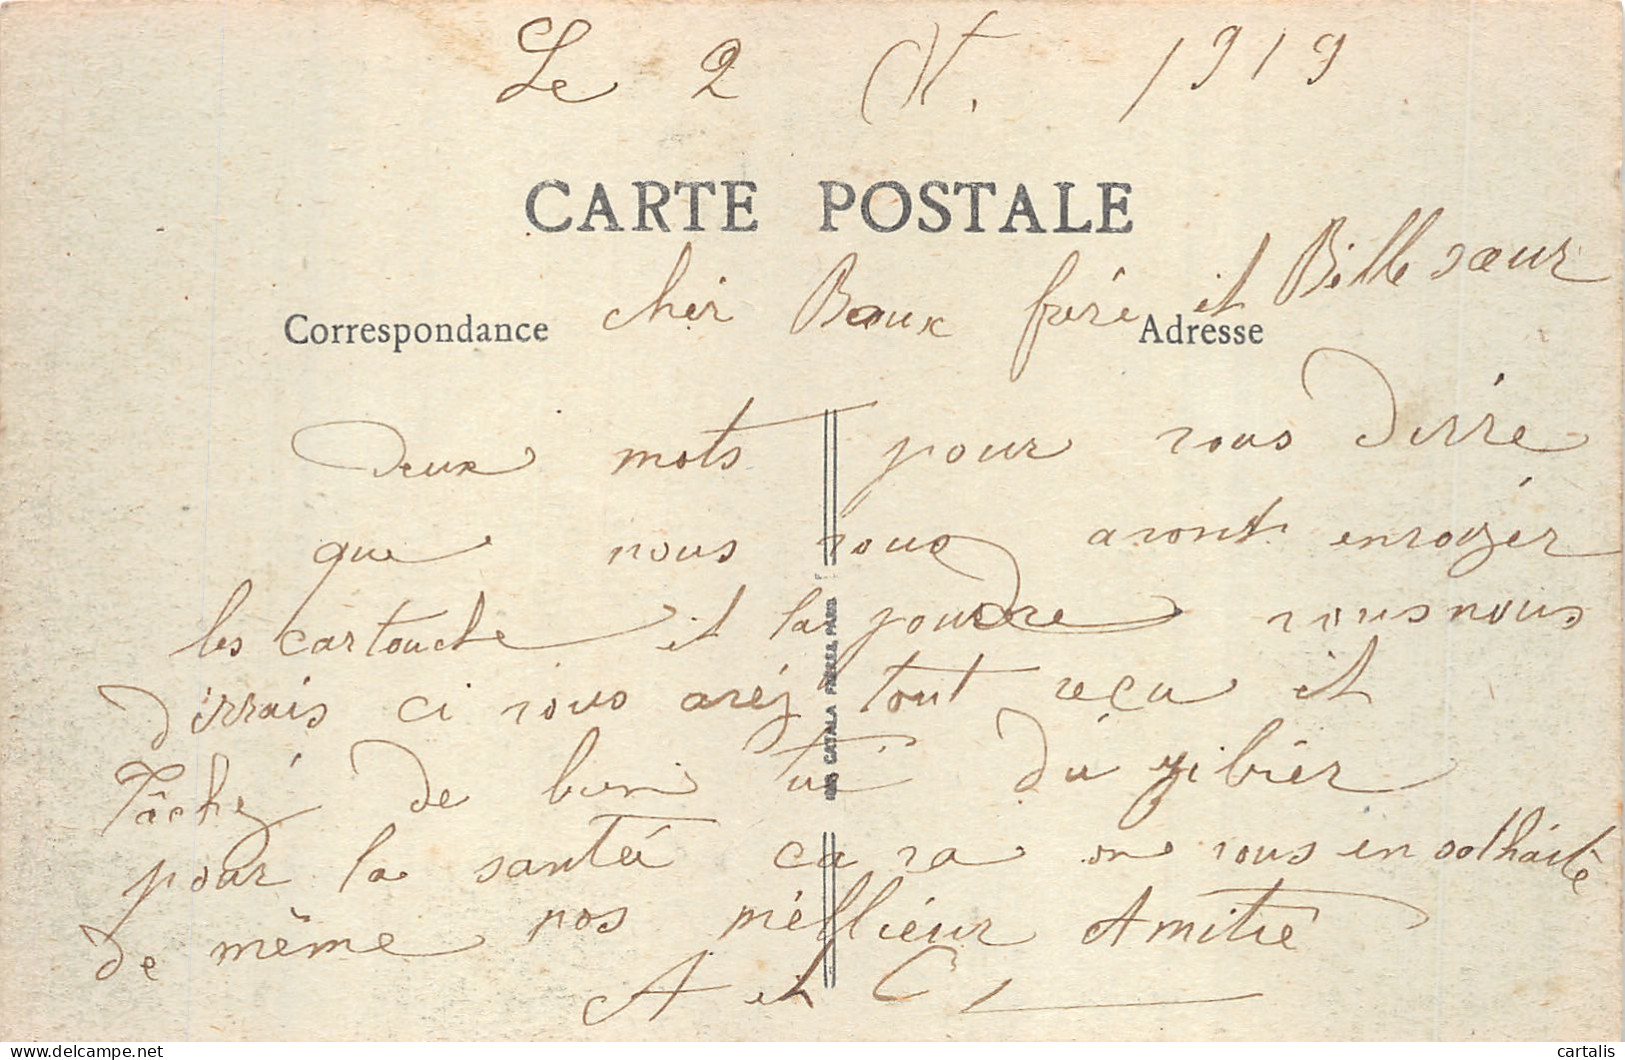 Le 2 Oct. 1919
CARTE POSTALE
Correspondance
Adresse
chèr Baux frère et Bèlle sœur
deux mots pour vous dirre
que nous vous avont envoyér
les cartouche et la poudre vous nous
dirrais ci vous avéz tout reçu et
Tâché de bien tué du gibier
pour la santéé ca va on vous en solhaite
de même nos mèllieur Amitié
A et C
CATALA FRERES, PARIS
cartalis